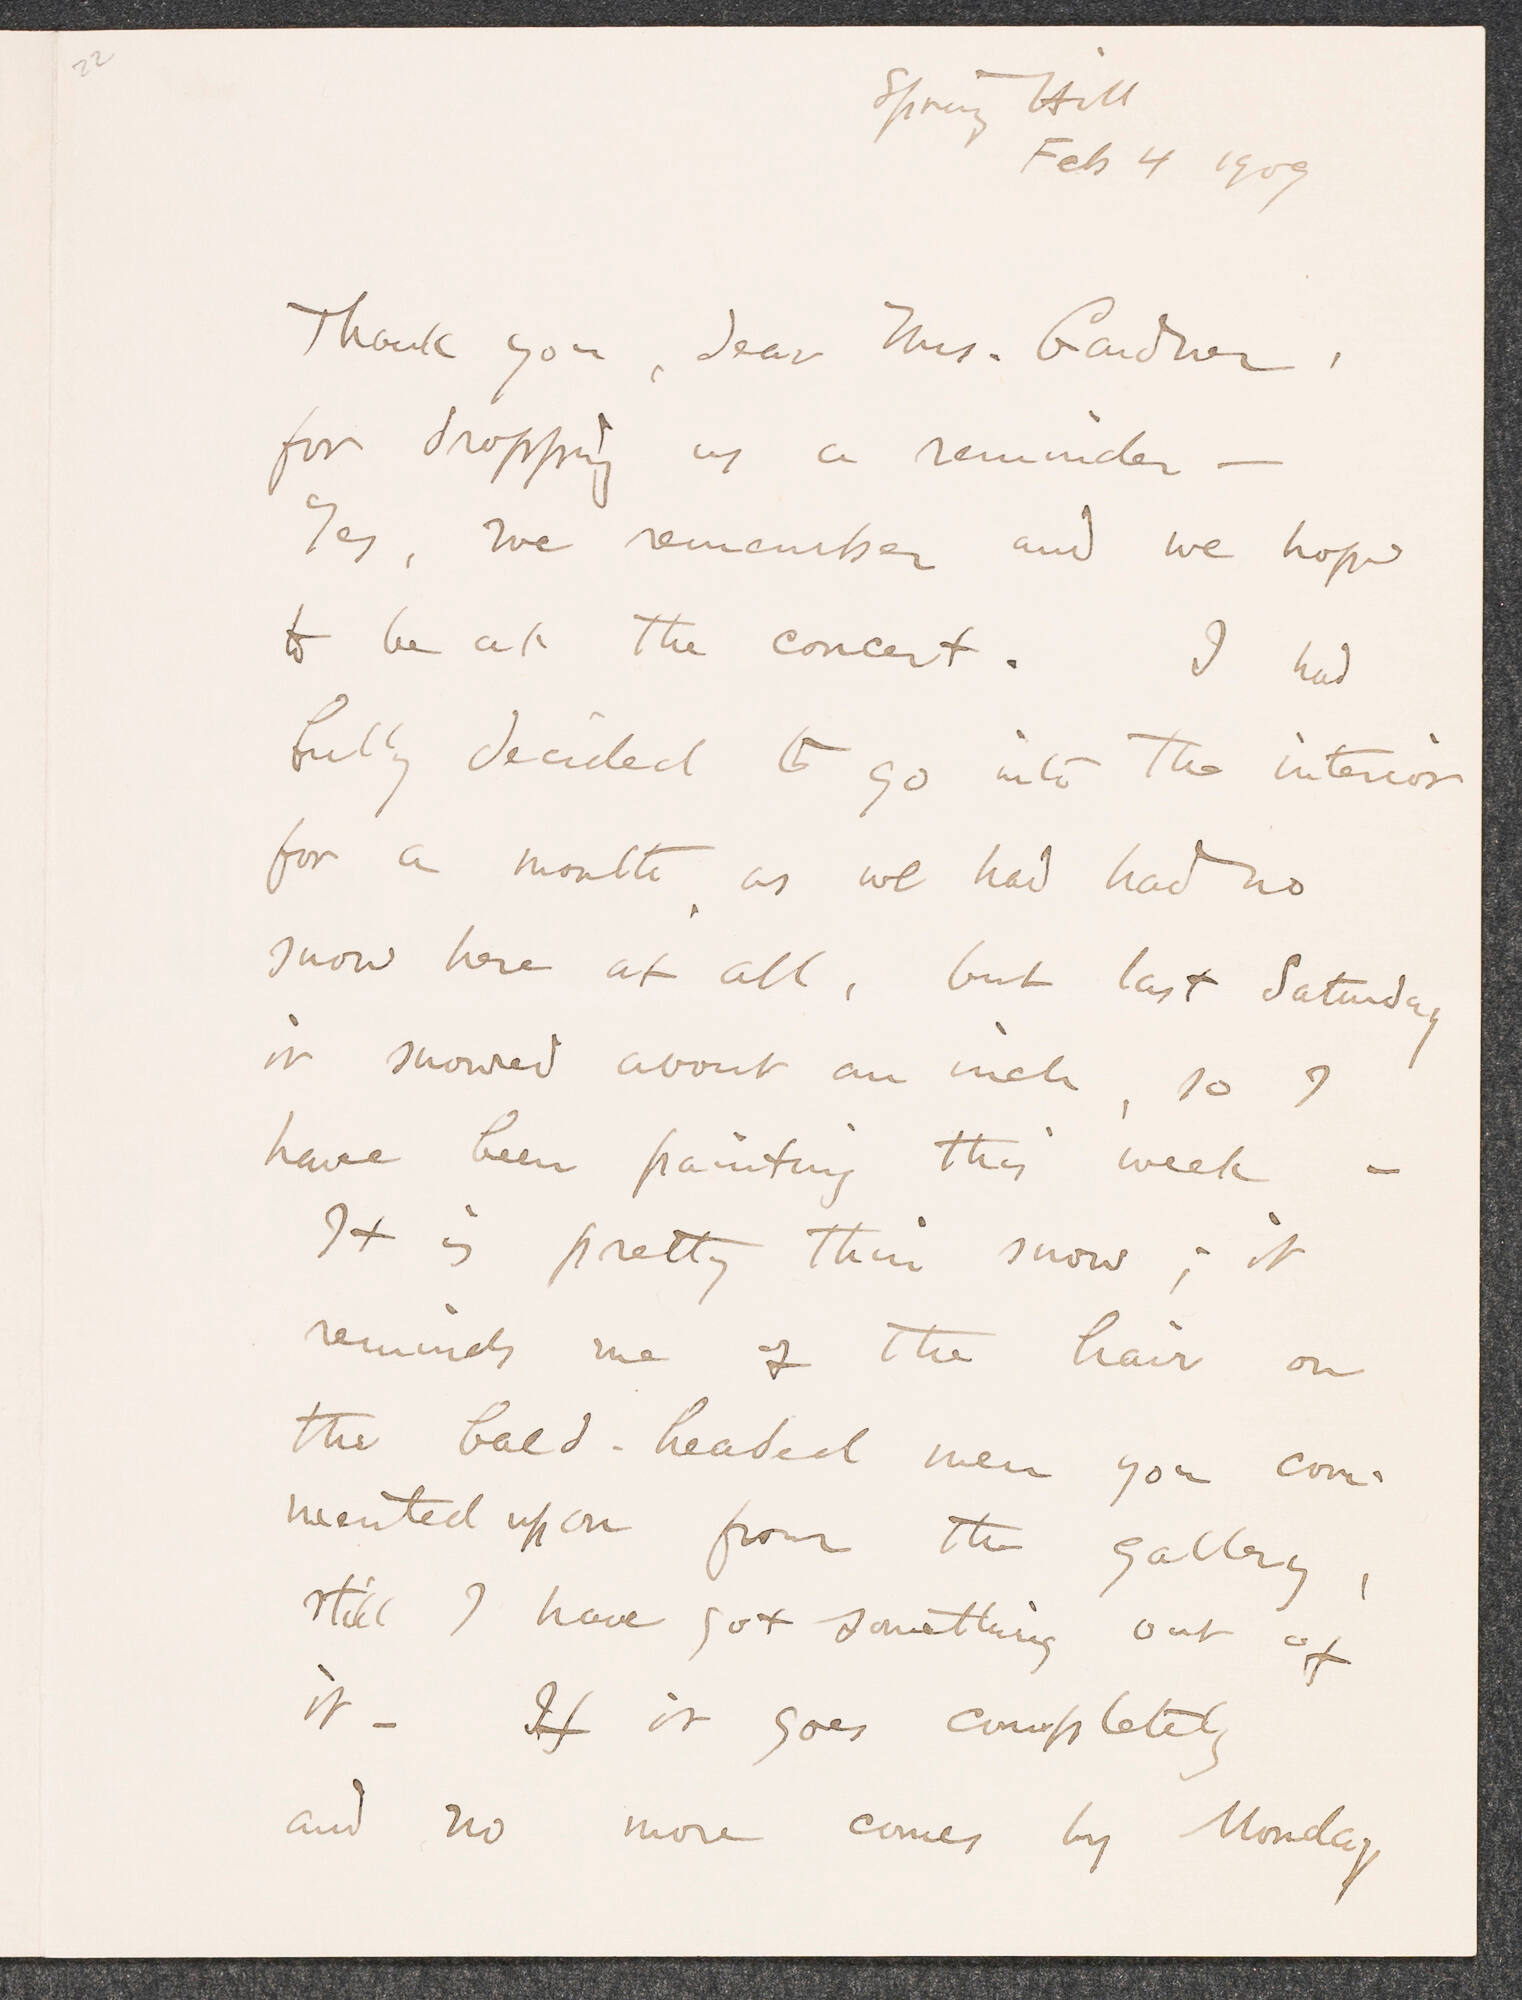 22
Spring Hill
Feb 4 1909
Thank you, dear Mrs. Gardner,
for dropping us a reminder —
Yes, we remember and we hope
to be at the concert. I had
fully decided to go into the interior
for a month, as we had had no
snow here at all, but last Saturday
it snowed about an inch, so I
have been painting this week —
It is pretty thin snow; it
reminds me of the hair on
the bald-headed men you com-
mented upon from the gallery,
still I have got something out of
it — If it goes completely
and no more comes by Monday